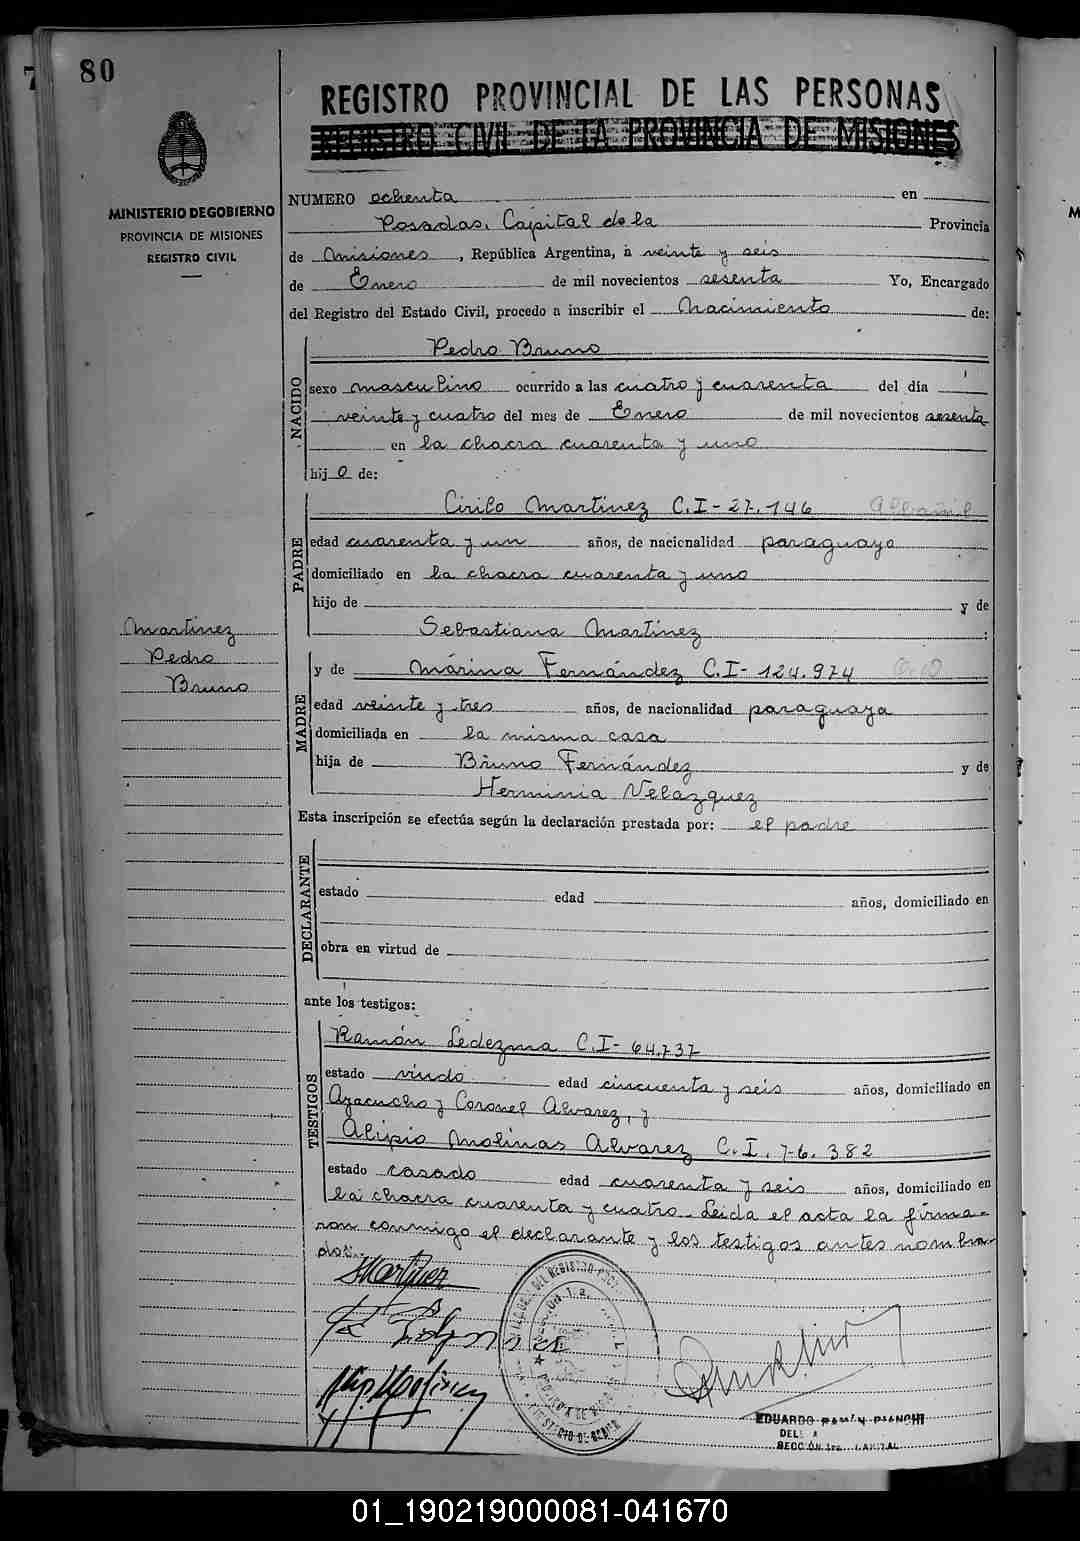 80
REGISTRO PROVINCIAL DE LAS PERSONAS
REGISTRO CIVIL DE LA PROVINCIA DE MISIONES
MINISTERIO DE GOBIERNO
PROVINCIA DE MISIONES
REGISTRO CIVIL
NUMERO ochenta en
Posadas, Capital de la Provincia
de Misiones, República Argentina, a veinte y seis
de Enero de mil novecientos sesenta Yo, Encargado
del Registro del Estado Civil, procedo a inscribir el Nacimiento de:
NACIDO
Pedro Bruno
sexo masculino ocurrido a las cuatro y cuarenta del día
veinte y cuatro del mes de Enero de mil novecientos sesenta
en la chacra cuarenta y uno
hijo de:
PADRE
Cirilo Martinez C.I-27.146 Albañil
edad cuarenta y un años, de nacionalidad paraguayo
domiciliado en la chacra cuarenta y uno
hijo de y de
Sebastiana Martinez :
Martinez
Pedro
Bruno
MADRE
y de Márina Fernández C.I-124.974
edad veinte y tres años, de nacionalidad paraguaya
domiciliada en la misma casa
hija de Bruno Fernández y de
Herminia Velazquez
Esta inscripción se efectúa según la declaración prestada por: el padre
DECLARANTE
estado edad años, domiciliado en
obra en virtud de
ante los testigos:
TESTIGOS
Ramón Ledezma C.I-64.737
estado viudo edad cincuenta y seis años, domiciliado en
Ayacucho y Coronel Alvarez, y
Alipio Molinas Alvarez C.I. 76.382
estado casado edad cuarenta y seis años, domiciliado en
la chacra cuarenta y cuatro. Leida el acta la firma-
ron conmigo el declarante y los testigos antes nombra-
dos.
Martinez
EDUARDO RAMÓN BIANCHI
SECCIÓN 1ra. CAPITAL
01_190219000081-041670